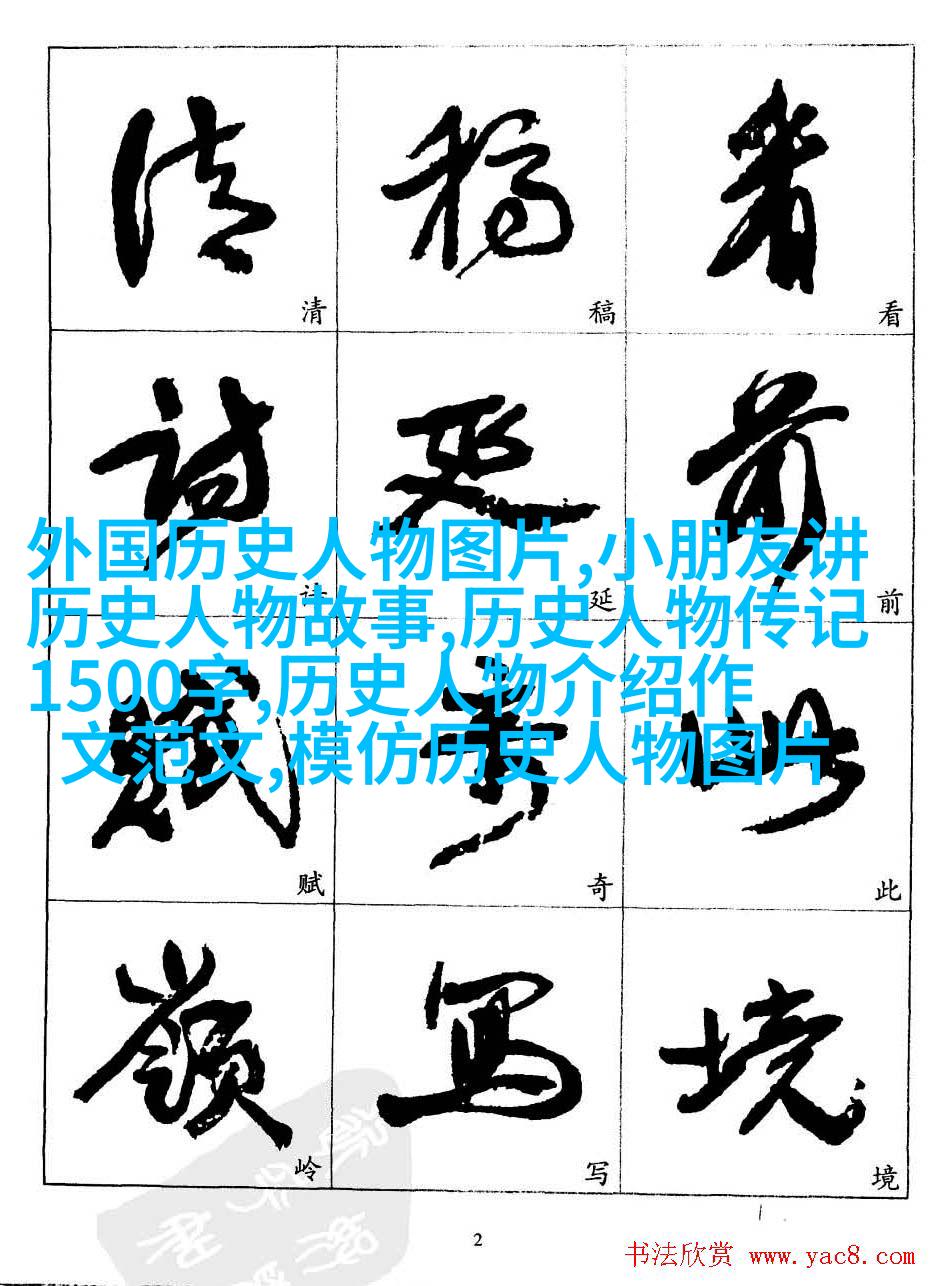 清 稿 看
诗 延 前
外国历史人物图片,小朋友讲
历史人物故事,历史人物传记
1500字,历史人物介绍作
文范文,模仿历史人物图片
赋 奇 此
岭 写 境
2
书法欣赏 www.yac8.com